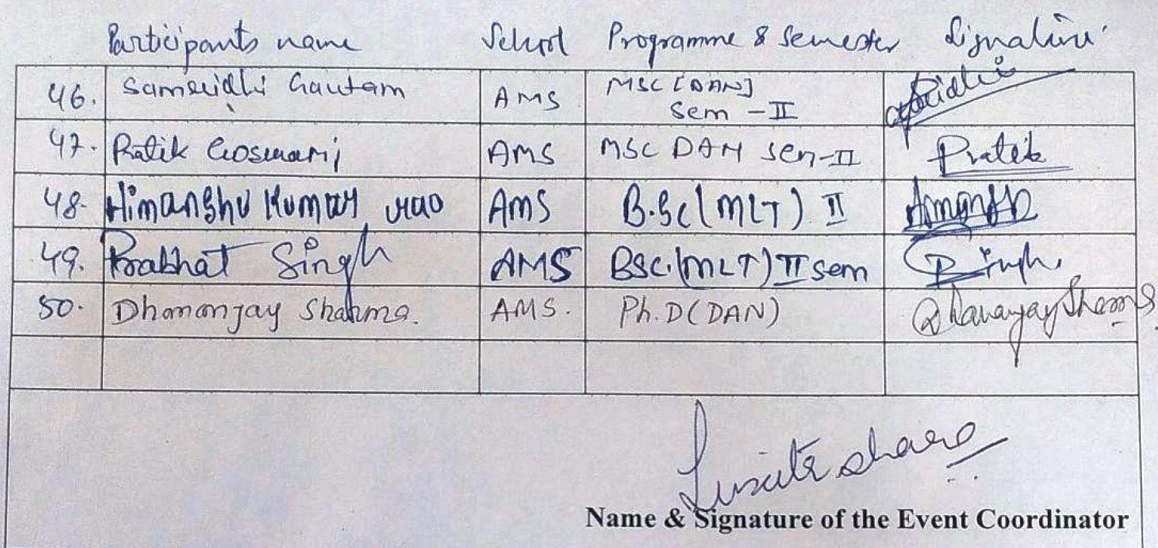 Participants name School Programme & Semester Signature
46. Samridhi Gautam AMS MSC [DAN]
Sem - II
47. Pratik Goswami AMS MSC DAN Sem-II Pratik
48. Himanshu Kumar AMS B.Sc (MLT) II
49. Prabhat Singh AMS BSC.(MLT) II sem P Singh.
50. Dhananjay Sharma. AMS. Ph.D (DAN) Dhananjay Sharma
Name & Signature of the Event Coordinator